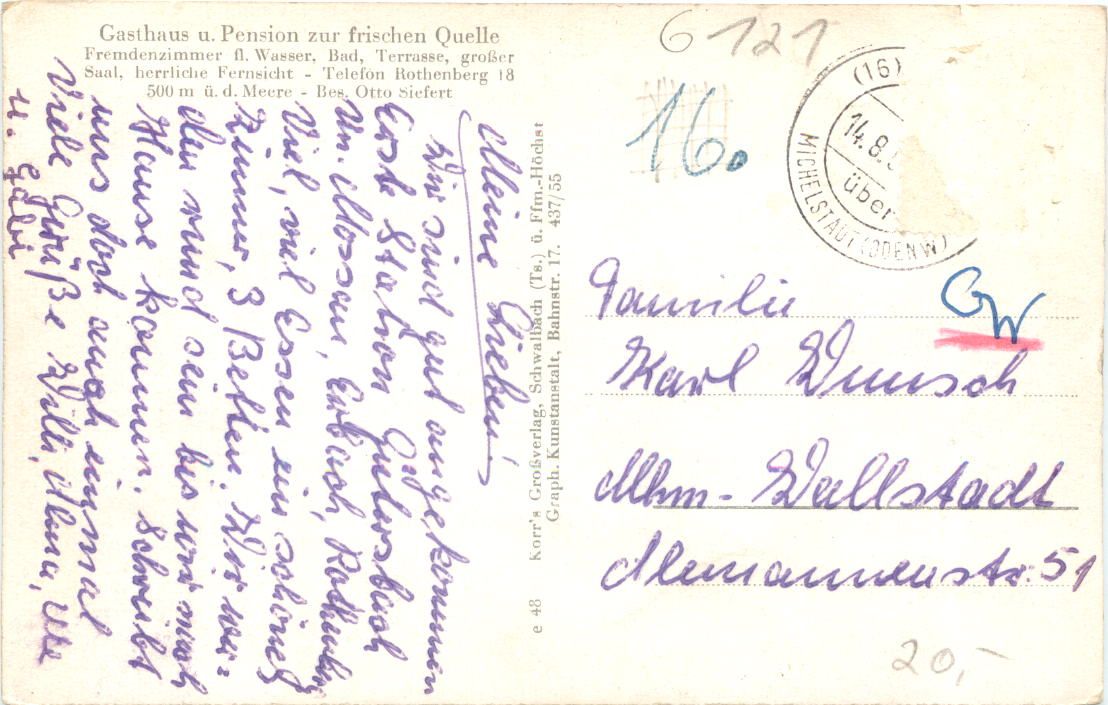 Gasthaus u. Pension zur frischen Quelle
Fremdenzimmer fl. Wasser, Bad, Terrasse, großer
Saal, herrliche Fernsicht - Telefon Rothenberg 18
500 m ü. d. Meere - Bes. Otto Siefert
Meine Lieben!
Wir sind gut angekommen
Erste Station Gütersbach
Un. Mossau, Erbach, Rothenberg
Viel, viel Essen ein schönes
Zimmer, 3 Betten. Wir wer=
den rund sein bis wir nach
Hause kommen. Schreibt
uns doch auch einmal
Viele Grüße Willi, Mama, Ute
u. Gabi
e 48 Korr's Großverlag, Schwalbach (Ts.) ü. Ffm.-Höchst
Graph. Kunstanstalt, Bahnstr. 17. 437/55
G 121
16.
(16)
14.8.
über
MICHELSTADT (ODENW)
GW
Familie
Karl Wunsch
Mhm-Wallstadt
Alemannenstr. 51
20,-